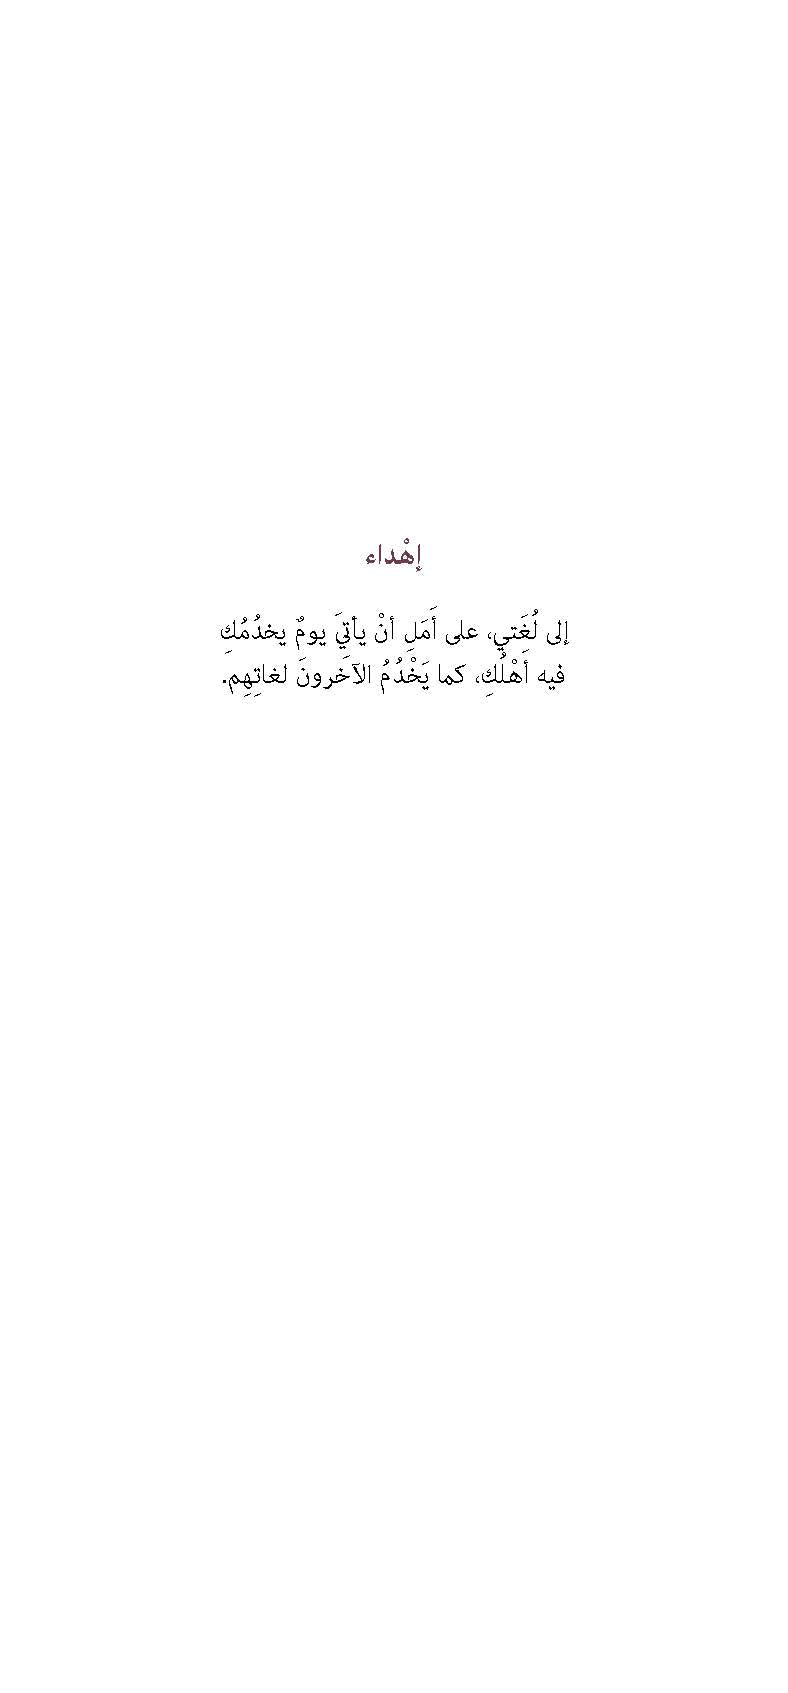 إهْداء
إلى لُغَتي، على أَمَلِ أنْ يأتيَ يومٌ يخدُمُكِ
فيه أهْلُكِ، كما يَخْدُمُ الآخَرونَ لغاتِهِم.